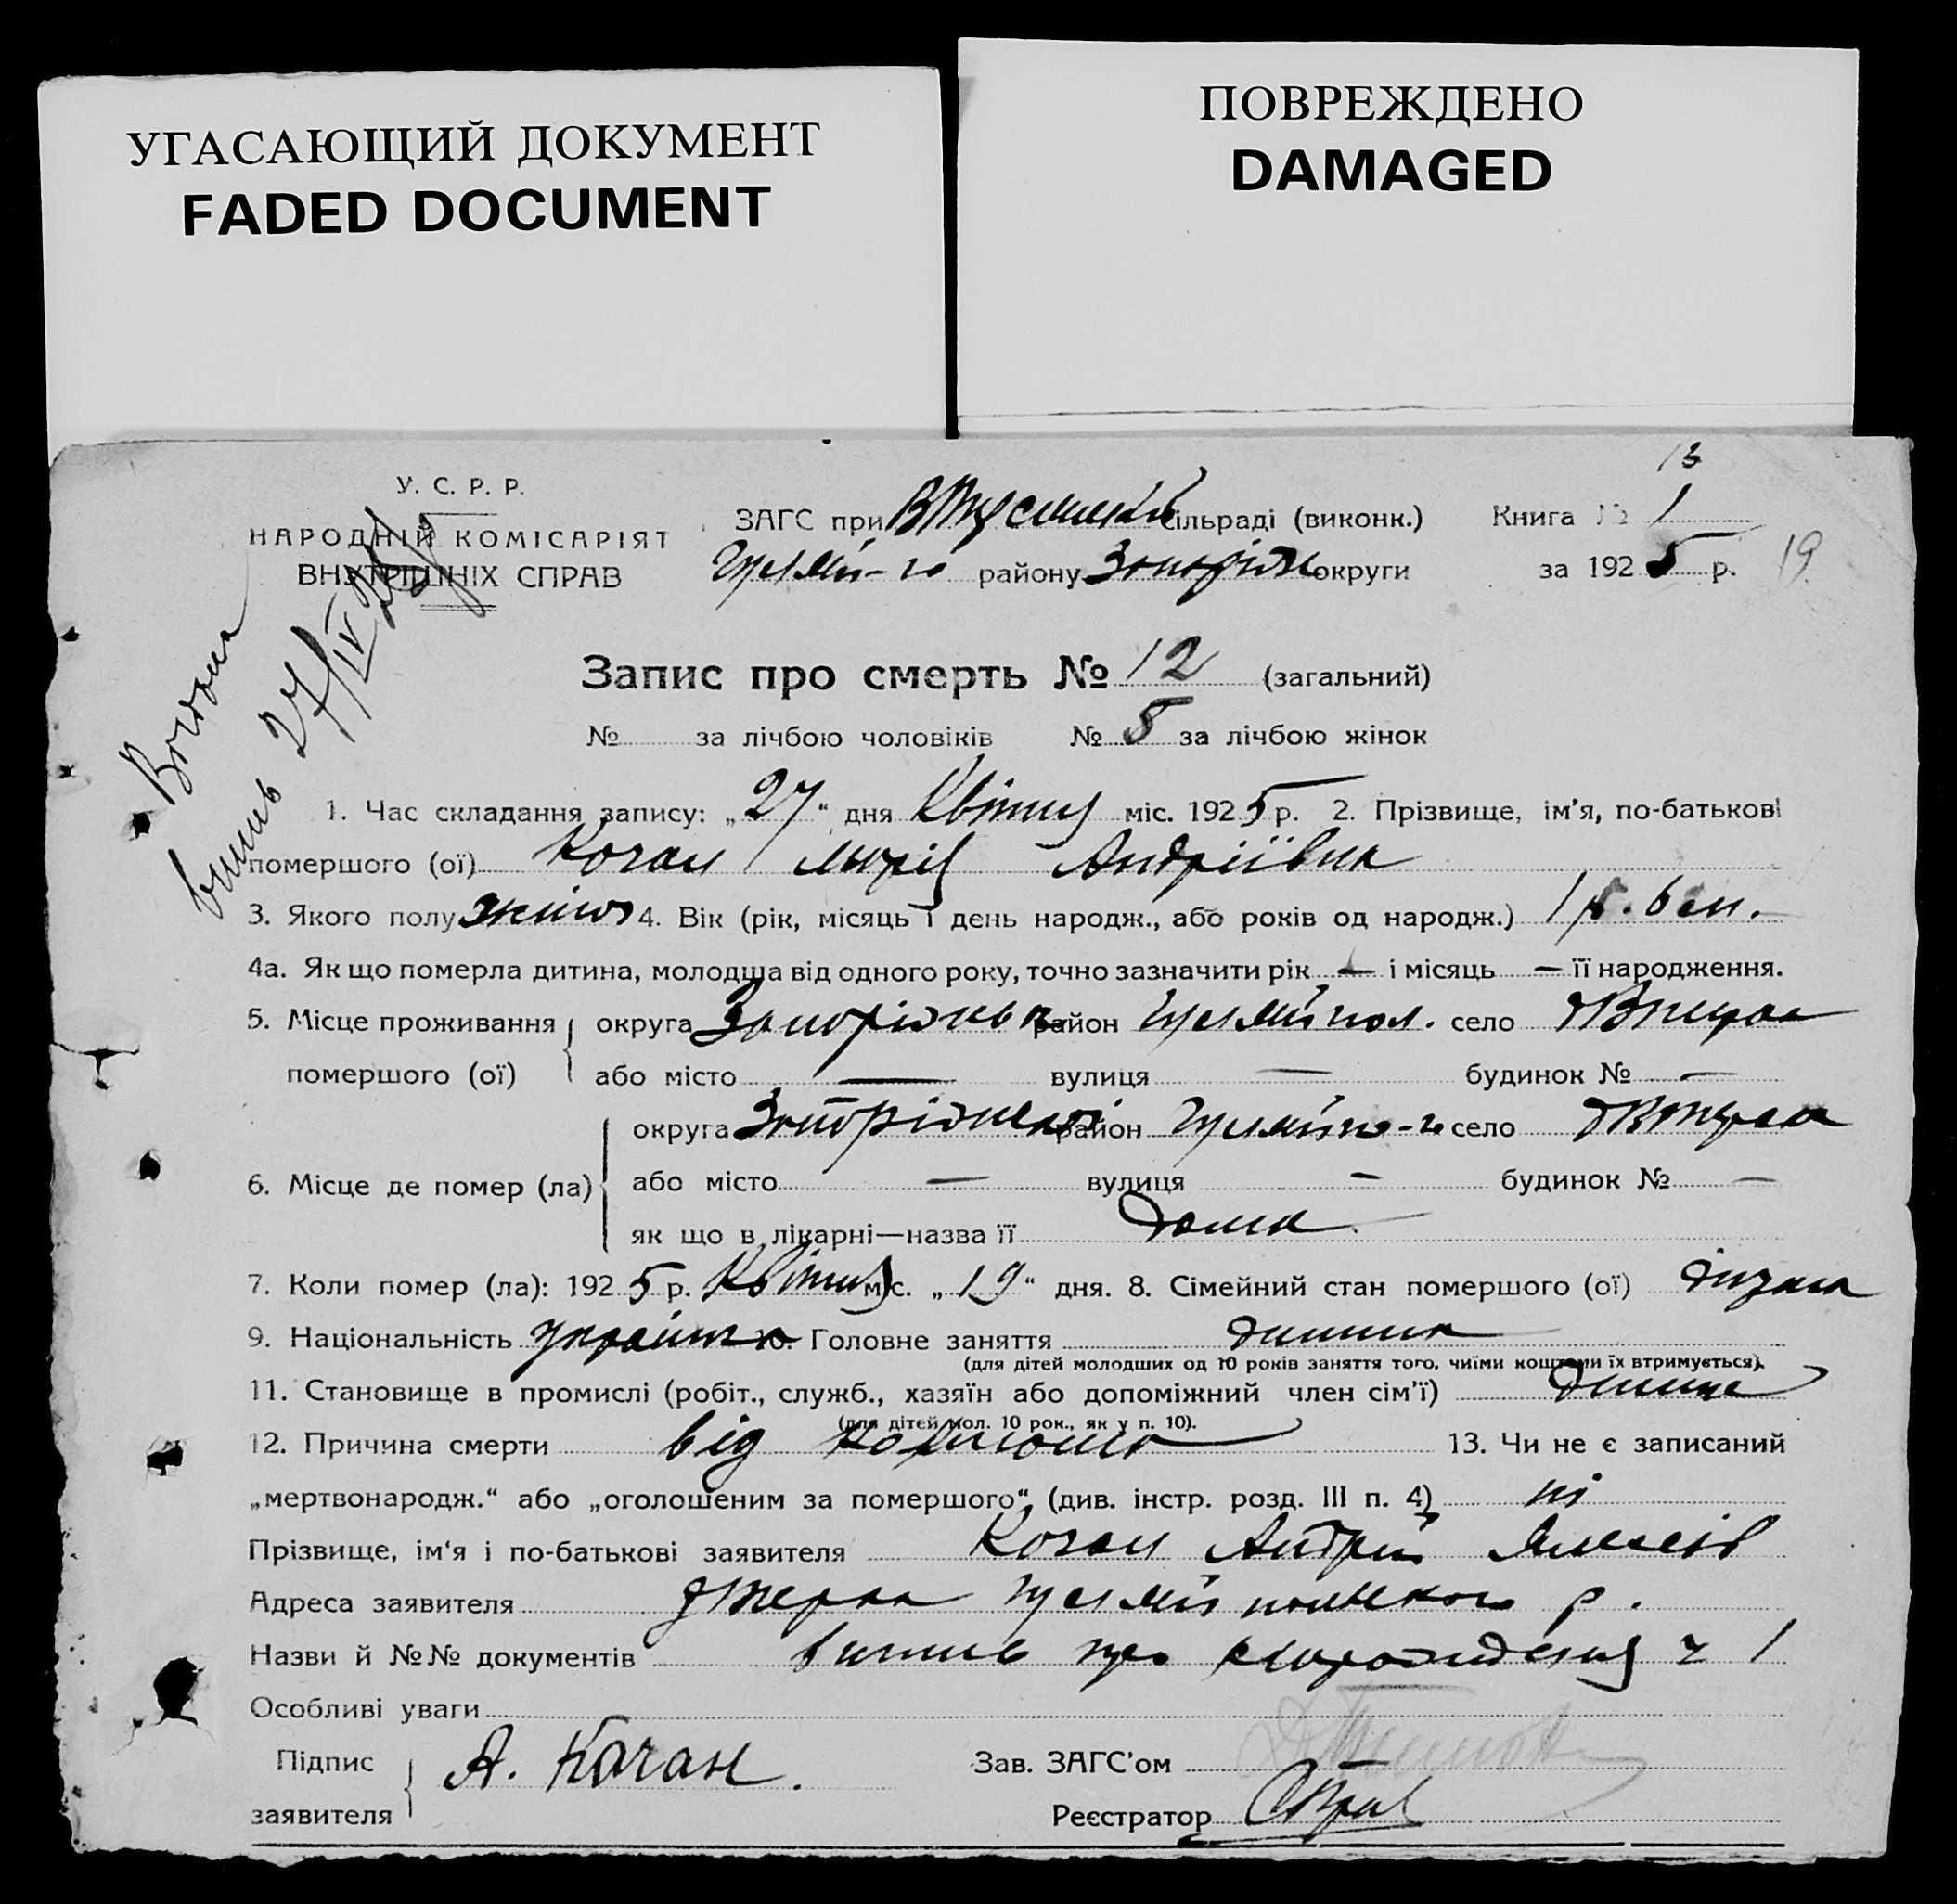 УГАСАЮЩИЙ ДОКУМЕНТ
FADED DOCUMENT
ПОВРЕЖДЕНО
DAMAGED
13
У. С. Р. Р.
НАРОДНІЙ КОМІСАРІЯТ
ВНУТРІШНІХ СПРАВ
ЗАГС при сільраді (виконк.)
району Запоріж округи
Книга № 1
за 1925 р.
19
27/IV
Запис про смерть № 12 (загальний)
№ за лічбою чоловіків № 5 за лічбою жінок
1. Час складання запису: „27“ дня Квітня міс. 1925 р. 2. Прізвище, ім'я, по-батькові
помершого (ої) Кочан Марія Андріївна
3. Якого полу жіноч 4. Вік (рік, місяць і день народж., або років од народж.) 1 р. 6 м.
4а. Як що померла дитина, молодша від одного року, точно зазначити рік — і місяць — її народження.
5. Місце проживання помершого (ої)
округа Запоріжськ район Гуляйпол. село
або місто — вулиця — будинок № —
6. Місце де помер (ла)
округа Запоріжської район Гуляйпо-го село
або місто — вулиця — будинок № —
як що в лікарні—назва її дома
7. Коли помер (ла): 1925 р. Квітня міс. „19“ дня. 8. Сімейний стан помершого (ої)
9. Національність Українка 10. Головне заняття дитина
(для дітей молодших од 10 років заняття того, чиїми коштами їх втримується).
11. Становище в промислі (робіт., служб., хазяїн або допоміжний член сім'ї) дитина
(для дітей мол. 10 рок., як у п. 10).
12. Причина смерти від 13. Чи не є записаний
„мертвонародж.“ або „оголошеним за помершого“ (див. інстр. розд. III п. 4) ні
Прізвище, ім'я і по-батькові заявителя Кочан Андрій
Адреса заявителя Гуляйпольского р.
Назви й №№ документів витяг про ч 1
Особливі уваги
Підпис заявителя А. Кочан.
Зав. ЗАГС'ом
Реєстратор